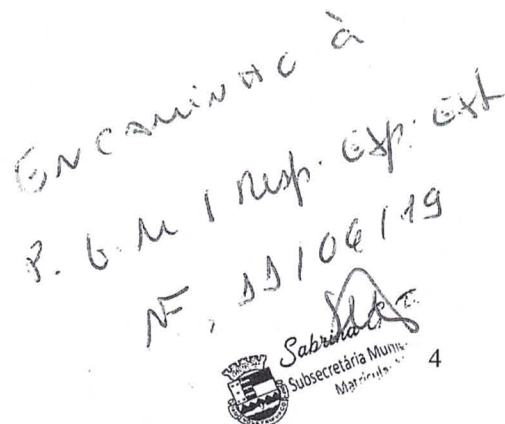 ENCAMINHO à
P.G.M / Resp. Exp. Ext
NF, 11/06/19
Sabrina
Subsecretária
Matrícula
4